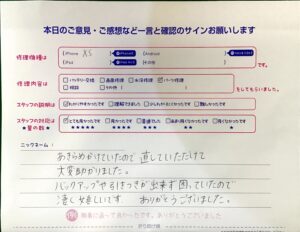 本日のご意見・ご感想など一言と確認のサインお願いします
修理機種は
iPhone XS
Android
iPad
その他
です。
修理内容は
バッテリー交換 画面修理 水没修理 パーツ修理
その他
をしてもらいました。
スタッフの説明は
わかりやすかったです 理解できました 少しわかりにくかったです 難しかったです
スタッフの対応は
★星の数★
とても良かったです 良かったです 普通でした
★★★★★ ★★★★ ★★★ ★★ ★
ニックネーム：
あきらめかけていたので 直していただけて
大変助かりました。
バックアップや引きつぎが出来ず困っていたので
凄く嬉しいです。 ありがとうございました。
修理に出って良かったです。ありがとうございました